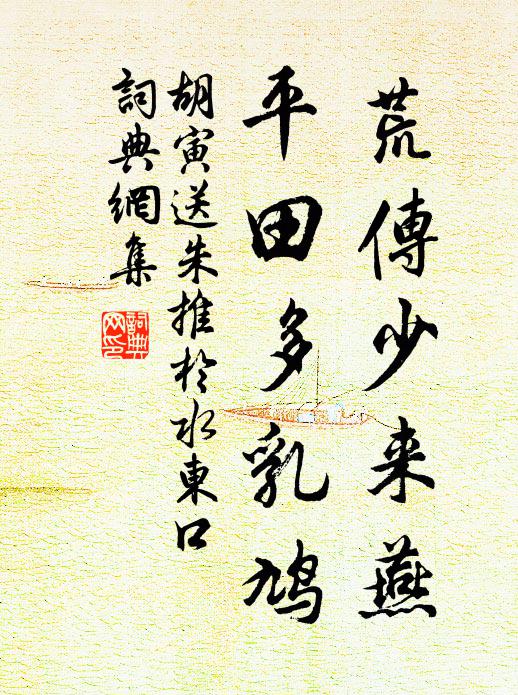 荒傳少来燕
平田多乳鳩
胡寅送朱推於水東口
詞典網集
詞典網印